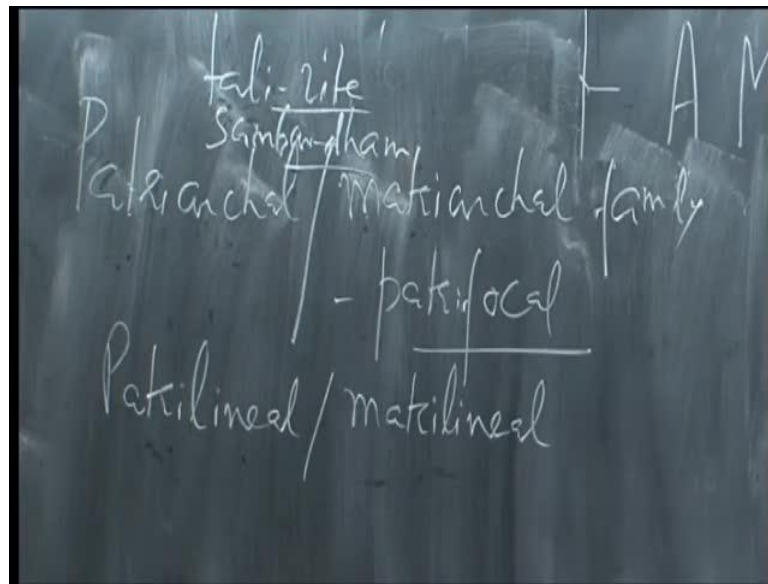 tali-rite
FAM
sambandham
Patriarchal / matriarchal family
- patrifocal
Patrilineal / matrilineal